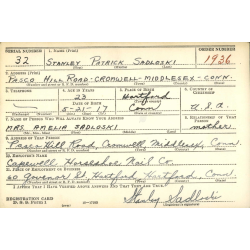 SERIAL NUMBER 1. NAME (Print) ORDER NUMBER
32 STANLEY PATRICK SADLOSKI 1936
2. ADDRESS (Print)
PASCO HILL ROAD - CROMWELL - MIDDLESEX - CONN.
3. TELEPHONE 4. AGE IN YEARS 5. PLACE OF BIRTH 6. COUNTRY OF CITIZENSHIP
23 Hartford
DATE OF BIRTH
5-21-17 Conn U.S.A.
7. NAME OF PERSON WHO WILL ALWAYS KNOW YOUR ADDRESS 8. RELATIONSHIP OF THAT PERSON
MRS. AMELIA SADLOSKI mother
9. ADDRESS OF THAT PERSON
Pasco Hill Road, Cromwell, Middlesex, Conn.
10. EMPLOYER'S NAME
Capewell Horseshoe Nail Co.
11. PLACE OF EMPLOYMENT OR BUSINESS
60 Governor St. Hartford, Hartford, Conn.
I AFFIRM THAT I HAVE VERIFIED ABOVE ANSWERS AND THAT THEY ARE TRUE.
REGISTRATION CARD
D. S. S. FORM 1
Stanley Sadloski